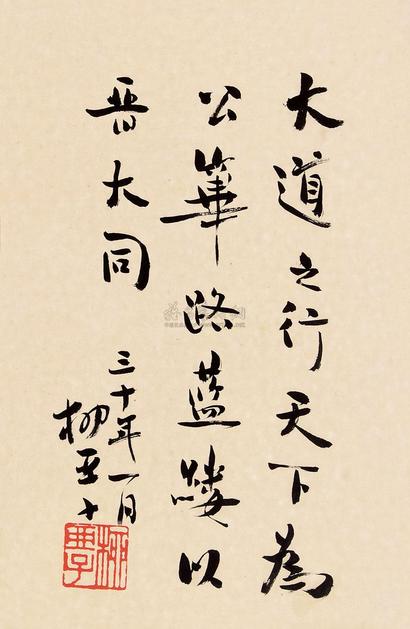 大道之行天下為
公篳路藍縷以
晋大同
三十年一月
柳亞子